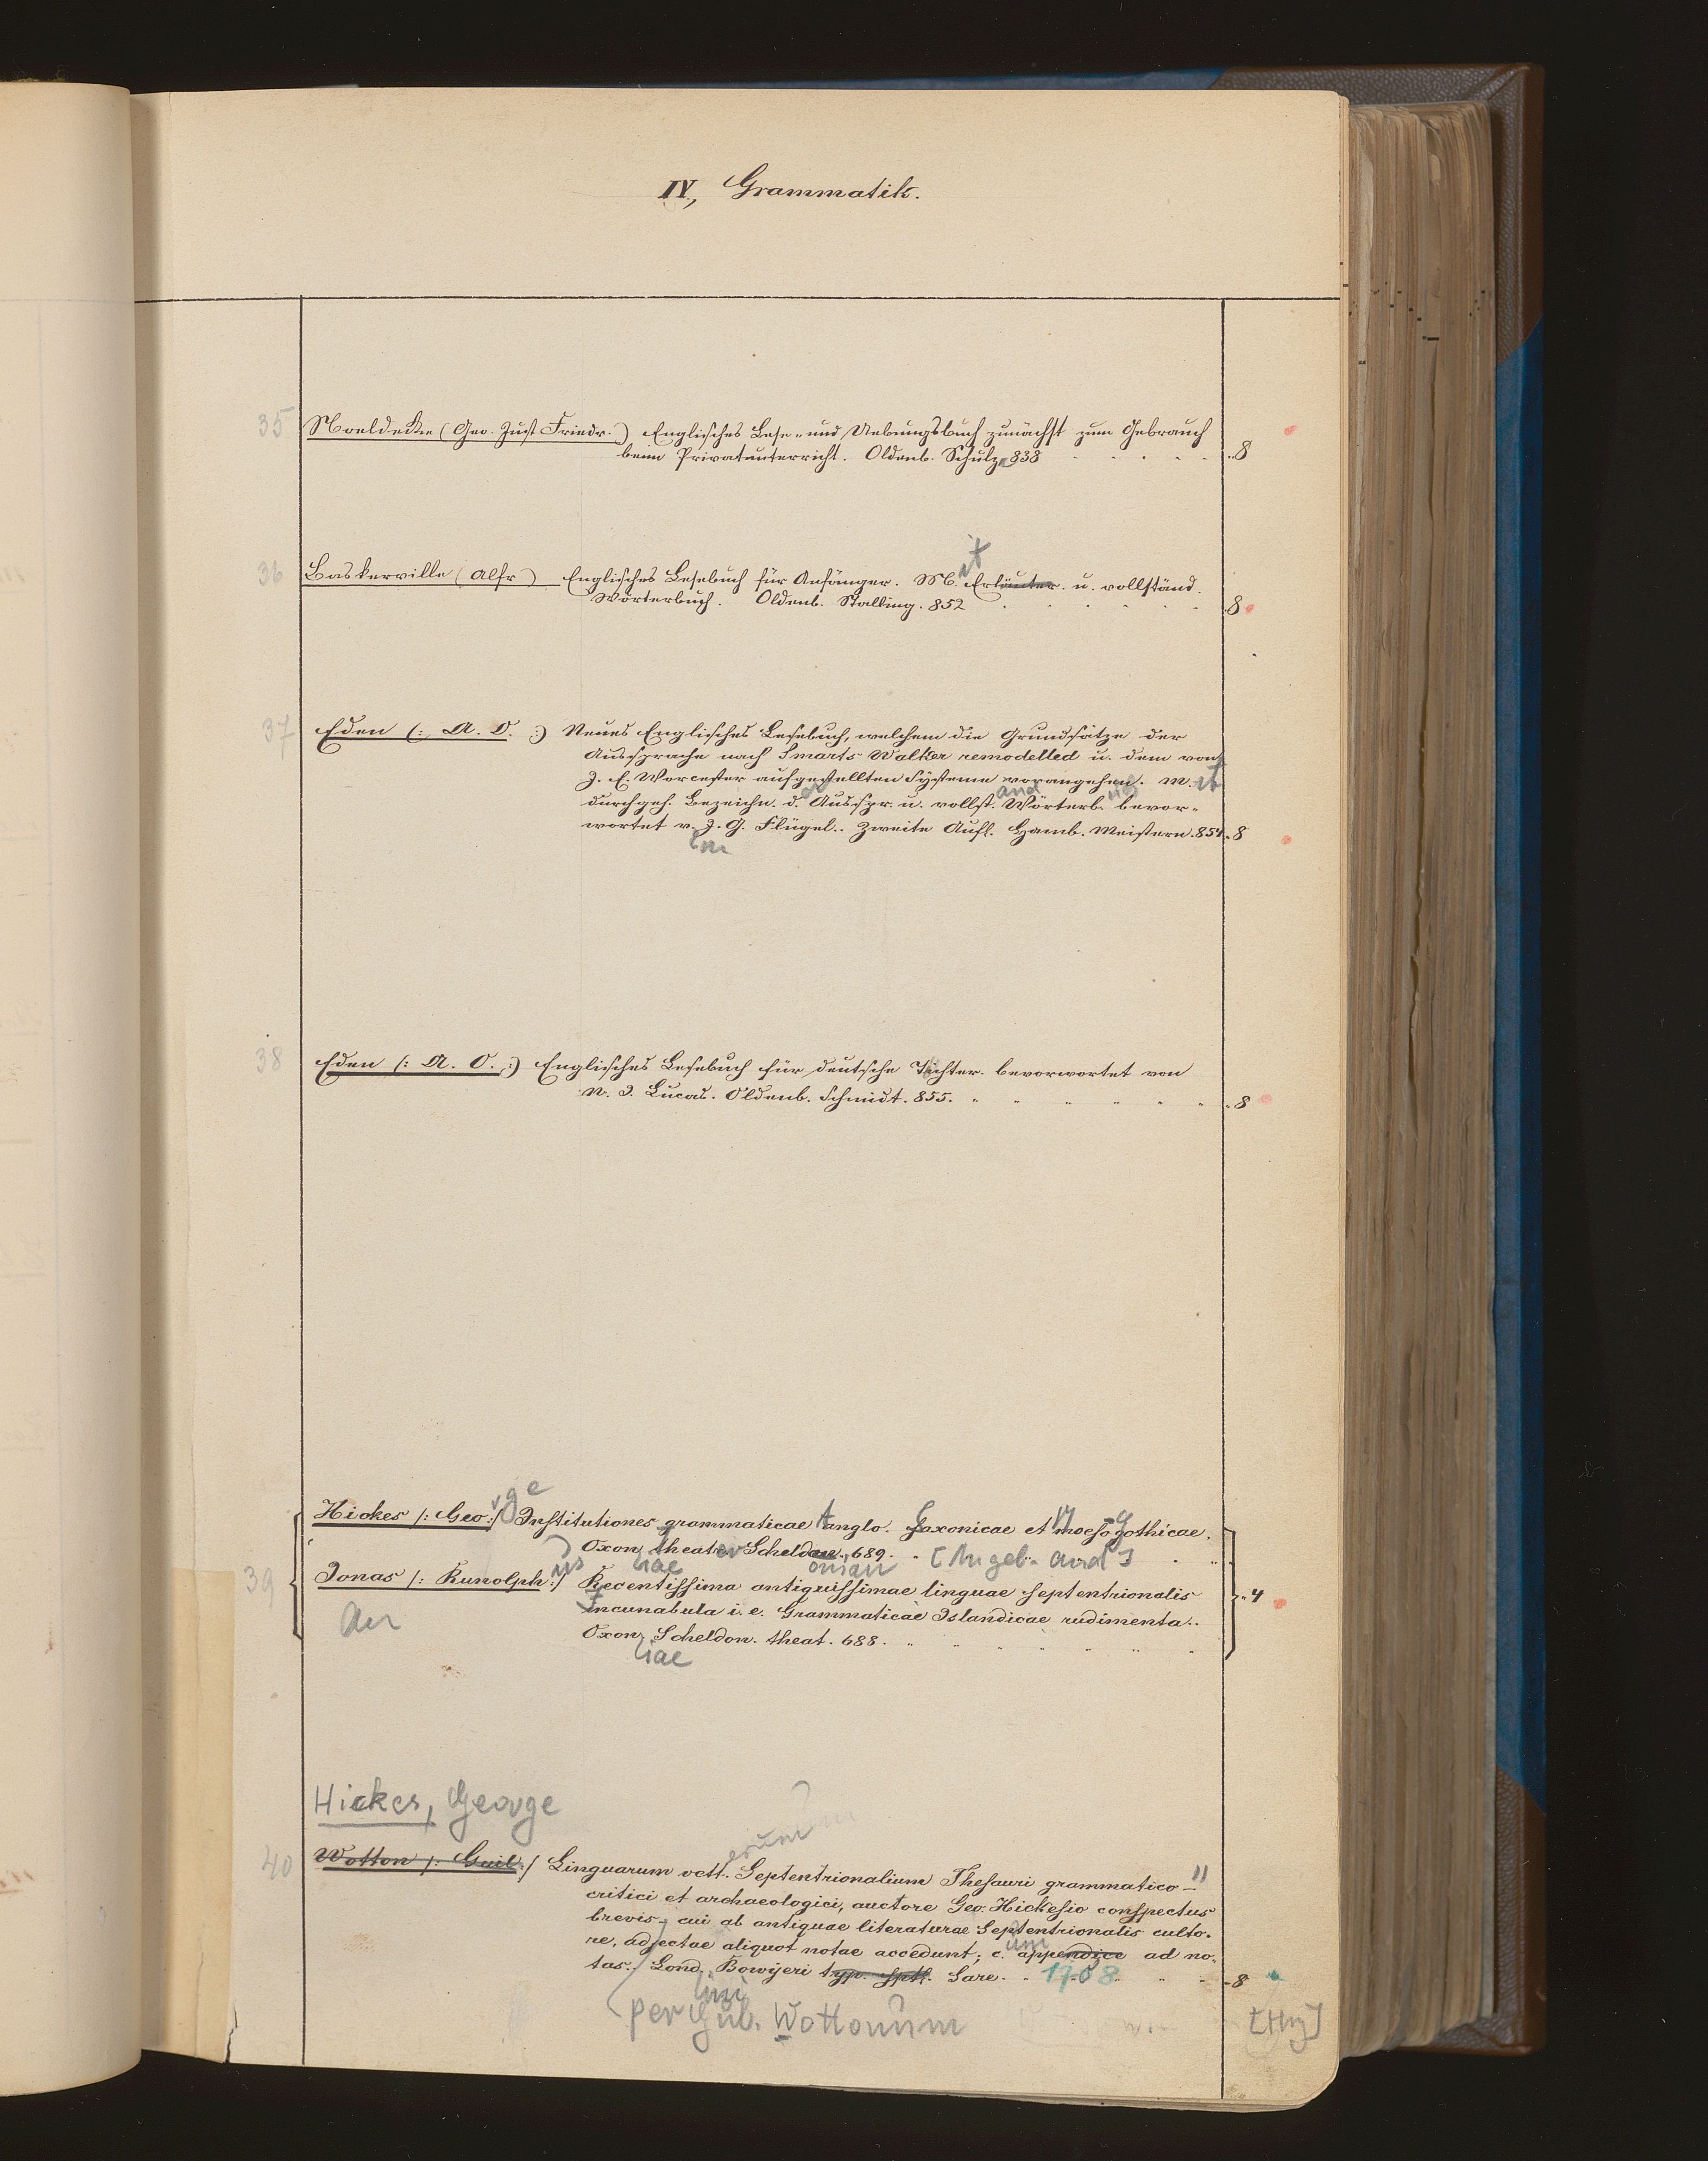 IV, Grammatik.
35 Noeldecke (Geo. Just Friedr.) Englisches Lese- und Uebungsbuch zunächst zum Gebrauch
beim Privatunterricht. Oldenb. Schulze 838 8
it
36 Baskerville (Alfr) Englisches Lesebuch für Anfänger. M. Erläuter. u. vollständ.
Wörterbuch. Oldenb. Stalling. 852 8
37 Eden (: A. O. :) Neues Englisches Lesebuch, welchem die Grundsätze der
Aussprache nach Smarts Walker remodelled u. dem von
J. E. Worcester aufgestellten Systeme vorangehen. M. it
durchgeh. Bezeichn. d. Ausspr. u. vollst. Wörterb. bevor-
wortet v. J. G. Flügel. Zweite Aufl. Hamb. Meistern. 854. 8
38 Eden (: A. O. :) Englisches Lesebuch für deutsche Töchter. bevorwortet von
N. I. Lucas. Oldenb. Schmidt. 855. 8
rge
Hickes /: Geo :/ Institutiones grammaticae Anglo-Saxonicae et Moeso-Gothicae.
Oxon. theatr. Scheldon. 689. [Angeb. and]
us niae onian
39 Jonas /: Runolph :/ Recentissima antiquissimae linguae septentrionalis
Incunabula i. e. Grammaticae Islandicae rudimenta.
Oxon. Scheldon. theat. 688. 4
niae
Hickes, George
erum
40 Wotton /: Guil :/ Linguarum vett. Septentrionalium Thesauri grammatico-
critici et archaeologici, auctore Geo. Hickesio conspectus
brevis, cui ab antiquae literaturae Septentrionalis culto-
re, adjectae aliquot notae accedunt; c. appendice ad no-
tas. Lond. Bowyeri typ. sptt. Sare. 1708 8
per Guil. Wottonum